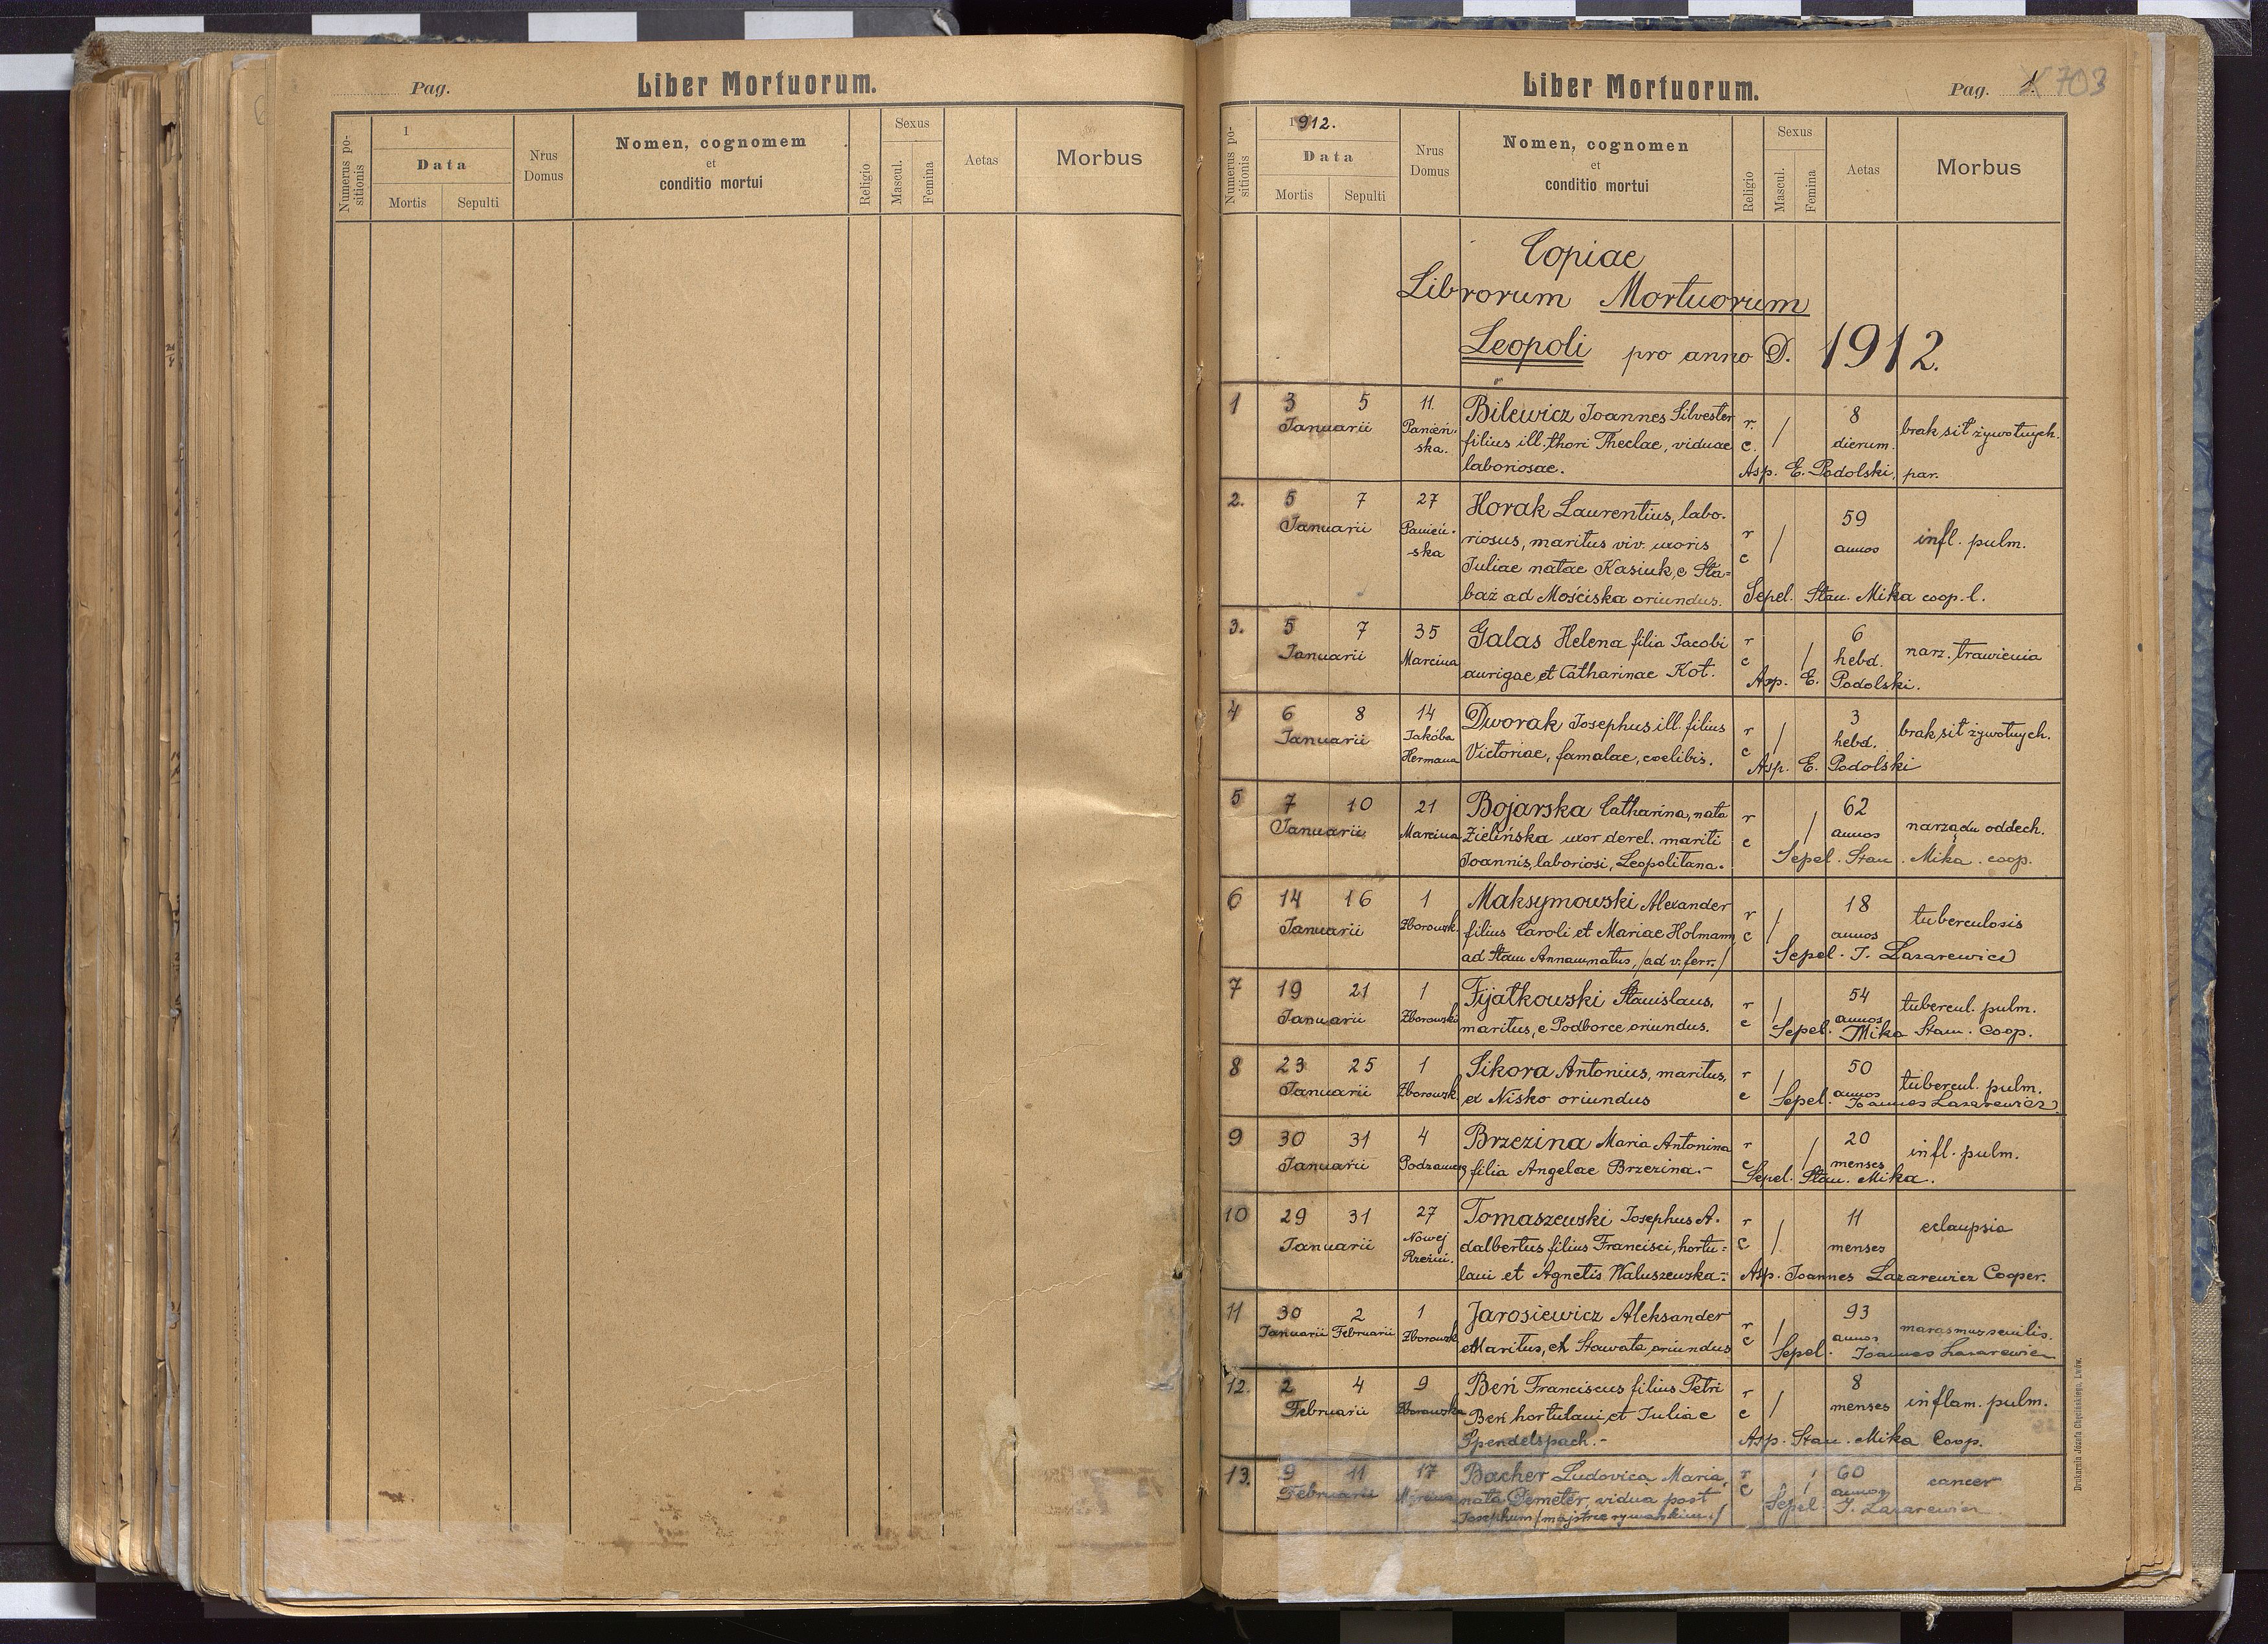 Pag.
Liber Mortuorum.
Numerus positionis
1
Data
Mortis
Sepulti
Nrus
Domus
Nomen, cognomem
et
conditio mortui
Religio
Sexus
Mascul.
Femina
Aetas
Morbus
Liber Mortuorum.
Pag. 1. 703
Numerus positionis
1912.
Data
Mortis
Sepulti
Nrus
Domus
Nomen, cognomen
et
conditio mortui
Religio
Sexus
Mascul.
Femina
Aetas
Morbus
Copiae
Librorum Mortuorum
Leopoli pro anno D. 1912.
1 3 5 11. Bilewicz Joannes Silvester r. / 8 brak sił żywotnych.
Januarii Panień- filius ill. thori Theclae, viduae c. dierum.
ska. laboriosae. Asp. E. Podolski, par.
2. 5 7 27 Horak Laurentius, labo- 59
Januarii Panień- riosus, maritus viv. uxoris r / annos infl. pulm.
-ska Juliae natae Kasiuk, e Sta= c
baż ad Mościska oriundus. Sepel. Stan. Mika coop. l.
3. 5 7 35 Galas Helena filia Jacobi r / 6 narz. trawienia
Januarii Marcina aurigae et Catharinae Kot. c hebd.
Asp. E. Podolski.
4 6 8 14 Dworak Josephus ill. filius r / 3 brak sił żywotnych.
Januarii Jakóba Victoriae, famalae, coelibis. c hebd.
Hermana Asp. E. Podolski
5 7 10 21 Bojarska Catharina, nata r / 62
Januarii Marcina Zielińska uxor derel. mariti c annos narządu oddech.
Joannis, laboriosi, Leopolitana. Sepel. Stan. Mika. coop.
6 14 16 1 Maksymowski Alexander r / 18 tuberculosis
Januarii Zborowsk. filius Caroli et Mariae Holmann c annos
ad Stam Annam natus, /ad v. ferr./ Sepel. J. Lazarewicz
7 19 21 1 Fijałkowski Stanislaus, r / 54 tubercul. pulm.
Januarii Zborowski maritus, e Podborce oriundus. c annos
Sepel. Mika Stan. Coop.
8 23 25 1 Sikora Antonius, maritus, r / 50 tubercul. pulm.
Januarii Zborowsk ex Nisko oriundus c annos
Sepel. Joannes Lazarewicz
9 30 31 4 Brzezina Maria Antonina r / 20 infl. pulm.
Januarii Podzamcz filia Angelae Brzezina.- c menses
Sepel. Stan. Mika.
10 29 31 27 Tomaszewski Josephus A- r / 11 eclampsia
Januarii Nowej dalbertus filius Francisci, hortu= c menses
Rzeźni. lani et Agnetis Waluszewska.- Asp. Joannes Lazarewicz Cooper.
11 30 2 1 Jarosiewicz Aleksander r / 93 marasmus senilis.
Januarii Februarii Zborowsk Maritus, ex Stawata oriundus c annos
Sepel. Joannes Lazarewicz
12. 2 4 9 Beń Franciscus filius Petri r / 8 inflam. pulm.
Februarii Zborowska Beń hortulani et Juliae c menses
Spendelspach.- Asp. Stan. Mika Coop.
13. 9 11 17 Bacher Ludovica Maria, r / 60 cancer
Februarii nata Demeter, vidua post c annos
Josephum /majstrze rymarskim./ Sepel. J. Lazarewicz
Drukarnia Józefa Chęcińskiego, Lwów.